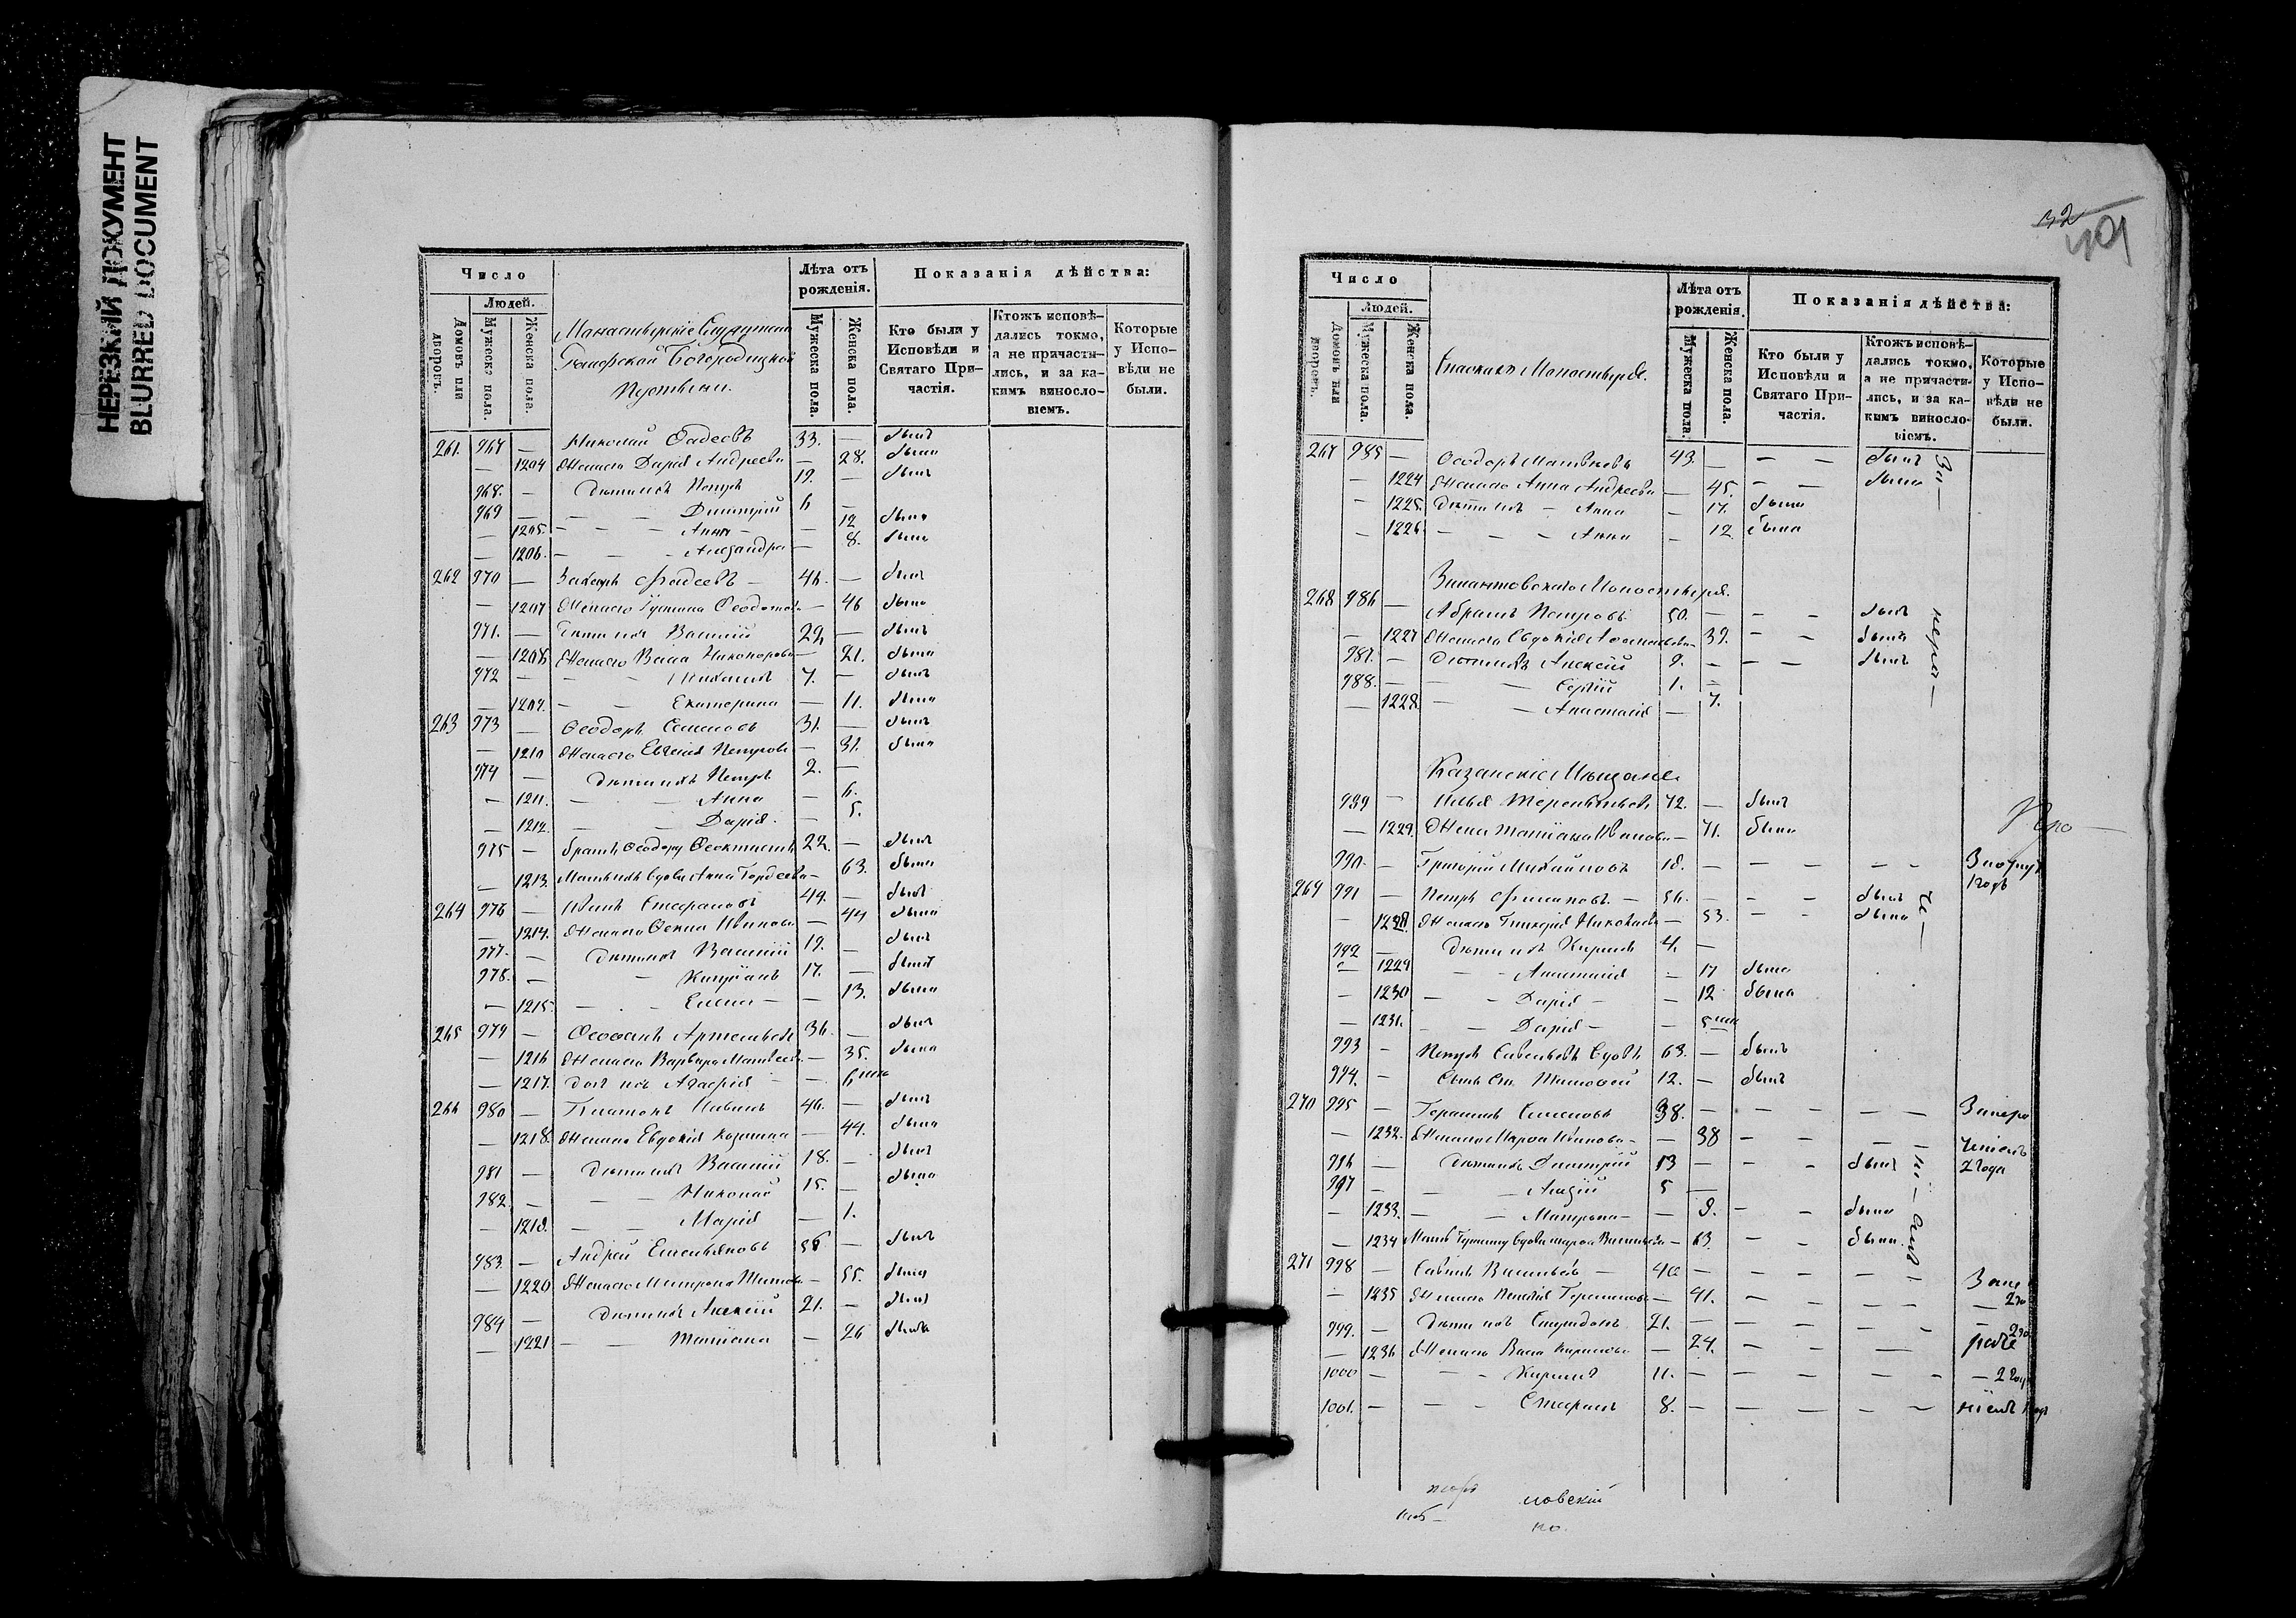 НЕРЕЗКИЙ ДОКУМЕНТ
BLURRED DOCUMENT
Число
Людей.
Домовъ или дворовъ.
Мужеска пола.
Женска пола.
Богородицкой
Пустыни.
Лѣта отъ рожденія.
Мужеска пола.
Женска пола.
Показанія дѣйства:
Кто были у Исповѣди и Святаго При-частія.
Ктожъ исповѣ-дались токмо, а не причасти-лись, и за ка-кимъ винослo-віемъ.
Которые у Испо-вѣди не были.
261. 967 — Николай Фадеевъ 33. — былъ
— 1204 Жена его Дарія Андреева — 28. была
968. — Дѣти ихъ Петръ 12. — былъ
969 — — — Дмитрій 6 —
— 1205. — — Анна — 12 была
— 1206. — — Александра — 8. была
262 970 — Захаръ Фадеевъ — 46. — былъ
— 1207 Жена его Устина Феодотова — 46 была
971. — Дѣти ихъ Василій 22 — былъ
— 1208 Жена его Васса Никифорова — 21. была
972 — — — 7. — былъ
— 1209. — — Екатерина — 11. была
263 973 — Феодоръ Семеновъ 31. — былъ
— 1210 Жена его Евгенія Петрова — 31. была
974 — Дѣти ихъ Петръ 2. —
— 1211. — — Анна — 6.
— 1212. — — Дарія. — 5.
975 — братъ Феодору Феоктистъ 22. — былъ
— 1213. Мать ихъ вдова Анна Гордеева — 63. была
264 976 — Иванъ Стефановъ 44. — былъ
— 1214. Жена его Фекла Иванова — 44 была
977. — Дѣти ихъ Василій 19. — былъ
978. — — Кипріанъ 17. — былъ
— 1215. — — Елена — — 13. была
265 979 — Феофанъ Артемьевъ 36. — былъ
— 1216 Жена его Варвара Матвеева — 35. была
— 1217. Дочь ихъ Агафія — — 6
266 980 — Платонъ 46. — былъ
— 1218. Жена его Евдокія Козмина — 44. была
981 — Дѣти ихъ Василій 18. — былъ
982. — — — Николай 15. — была
— 1219. — — Марія — 1.
983. — Андрей Емельяновъ 56 — былъ
— 1220 Жена его Матрона Титова — 55. была
984 — Дѣти ихъ Алексій 21. — былъ
— 1221 — — Татіана — 26 была
32
401
Число
Людей.
Домовъ или дворовъ.
Мужеска пола.
Женска пола.
Спаскаго Монастыря.
Лѣта отъ рожденія.
Мужеска пола.
Женска пола.
Показанія дѣйства:
Кто были у Исповѣди и Святаго При-частія.
Ктожъ исповѣ-дались токмо, а не причасти-лись, и за ка-кимъ винослo-віемъ.
Которые у Испо-вѣди не были.
267 985 — Феодоръ Матвеевъ 43. — — — былъ За —
— 1224 Жена его Анна Андреева — 45. — — была
— 1225. Дѣти ихъ — Анна — 17. была
— 1226. — — — Анна — 12. была
Зилантовскаго Монастыря.
268 986 — Абрамъ Петровъ 50. — — — былъ
— 1227 Жена его Евдокія — 39. — — была
987. — Дѣти ихъ Алексій 9. — — — былъ
988. — — — Сергій 1. —
— 1228. — — Анастасія — 7.
нера —
Казанскіе Мѣщане.
989 — Илья Терентьевъ 72. — былъ
— 1229. Жена Татіана Иванова — 71. была
990. — Григорій Михайловъ 18. — — — — —
269 991 — Петръ Филиповъ — 56. — — — былъ
— 1228. Жена его Гликерія Николаева — 53. — — была
992 — Дѣти ихъ Кирилъ 4. —
— 1229 — — Анастасія — 17 была
— 1230 — — Дарія — — 12 была
— 1231. — — Дарія — — 5
993 — Петръ Савельевъ вдовъ 63. — былъ
994. — Сынъ его Тимофей 12. — былъ
270 995 — Герасимъ Семеновъ 38. — — — — — Занера
— 1232. Жена его Марфа Иванова — — 38 — — — —
996 — Дѣти ихъ Дмитрій 13 — — — былъ 2 года
997 — — — 5 —
— 1233. — — Матрона — — 9. — — была
— 1234 — 63. — — была
271 998 — Савинъ Васильевъ — 42 — — — —
— 1235 Жена его Герасимова — 41. — — — —
999. — Дѣти ихъ Спиридонъ 21. — — — — — —
— 1236 Жена его Васса Кирилова — 24. — — —
1000 — — — Кирилъ 11. — — — — — — 2 год
1001. — — — Стефанъ 8. — — — — —
ловскій